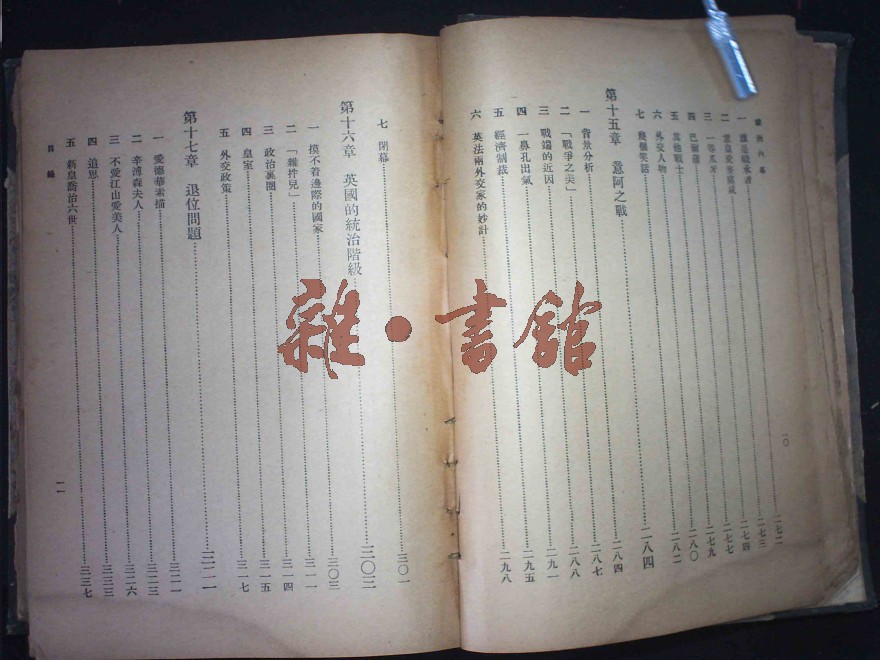 歐洲內幕
一 誰是繼承者 二七二
二 意皇愛麥虞威 二七三
三 一等瓜牙 二七四
四 巴爾蒲 二七七
五 其他戰士 二七九
六 外交人物 二八〇
七 幾個笑話 二八二
第十五章 意阿之戰 二八四
一 背景分析 二八四
二 「戰爭之夫」 二八七
三 戰端的近因 二八八
四 一鼻孔出氣 二九一
五 經濟制裁 二九五
六 英法兩外交家的妙計 二九八
一〇
七 閉幕 三〇一
第十六章 英國的統治階級 三〇二
一 摸不着邊際的國家 三〇三
二 「雜拌兒」 三一一
三 政治裏圈 三一四
四 皇室 三一五
五 外交政策 三一七
第十七章 退位問題 三二一
一 愛德華素描 三二一
二 辛溥森夫人 三二三
三 不愛江山愛美人 三二六
四 追思 三三三
五 新皇喬治六世 三三七
目錄
一一
雜·書館